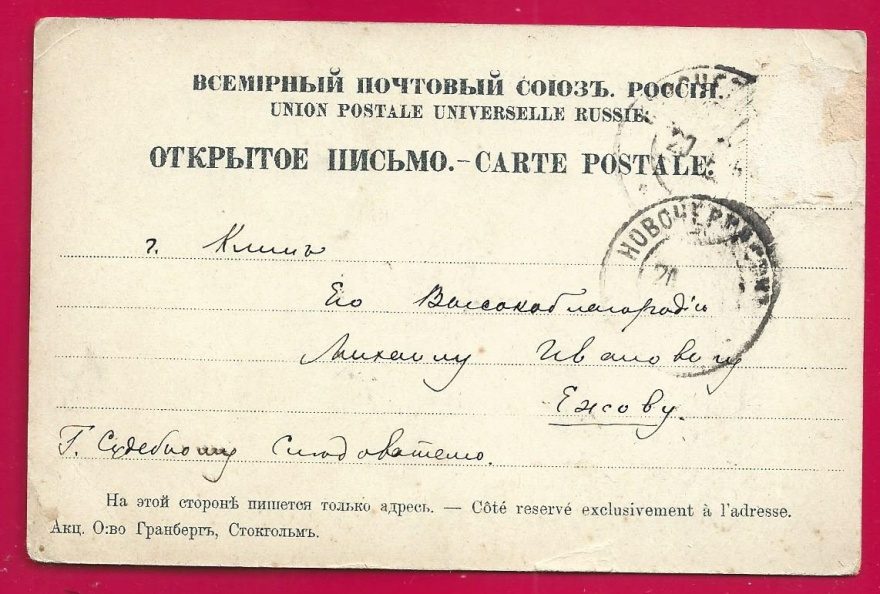 ВСЕМІРНЫЙ ПОЧТОВЫЙ СОЮЗЪ. РОССІЯ.
UNION POSTALE UNIVERSELLE RUSSIE.
ОТКРЫТОЕ ПИСЬМО.-CARTE POSTALE.
г. Клинъ
НОВОЧЕРКАССКЪ
20
Его Высокоблагородiю
Михаилу Ивановичу
Ежову.
Г. Судебному Следователю.
На этой сторонѣ пишется только адресъ. — Côté reservé exclusivement à l'adresse.
Акц. О:во Гранбергъ, Стокгольмъ.